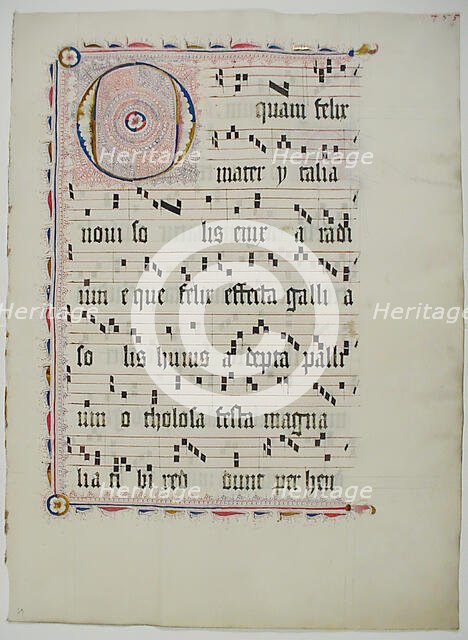 755
O quam felix
mater y talia
noui so lis eiux a radi
um e que felix effecta galli a
so lis huius a depta palli
um o tholosa festa magna
lia ti bi red dunt per hen
Heritage Heritage Heritage
Heritage Heritage Heritage
Heritage Heritage Heritage